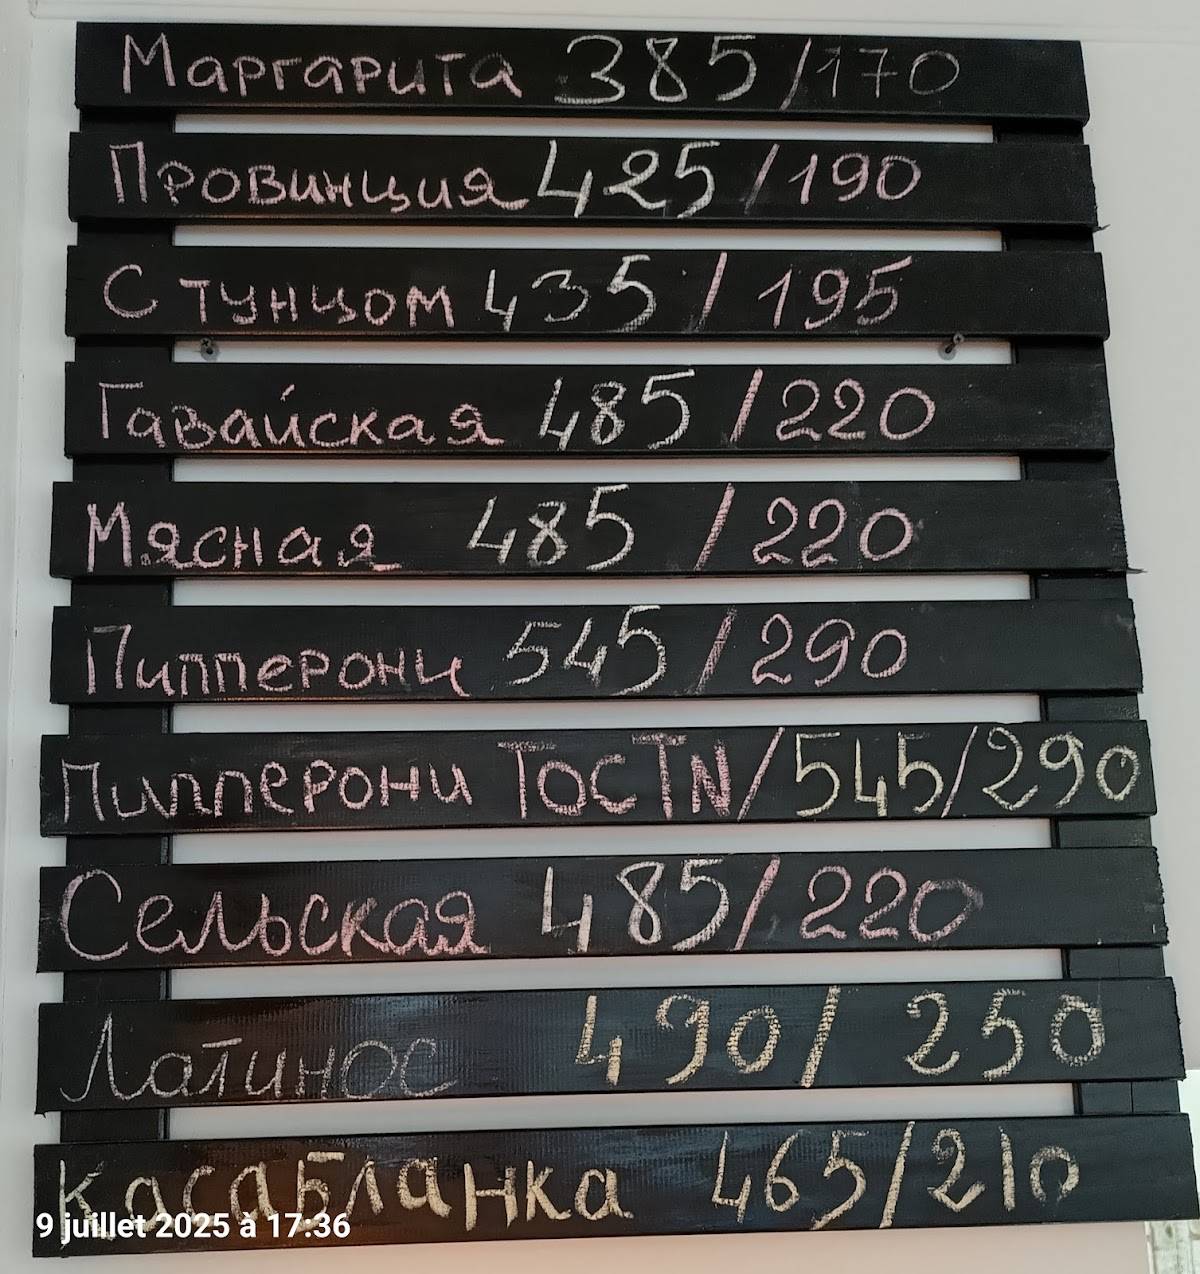 Маргарита 385/170
Провинция 425/190
С тунцом 435/195
Гавайская 485/220
Мясная 485/220
Пипперони 545/290
Пипперони ТОСТN/545/290
Сельская 485/220
Латинос 490/250
Касабланка 465/210
9 juillet 2025 à 17:36